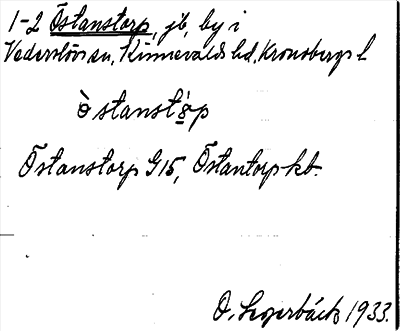 1-2 Östanstorp, jb, by i
Vederslövs sn, Kinnevalds hd, Kronobergs l
östanstấp
Östanstorp G 15, Östantorp kb.
O. 1933.